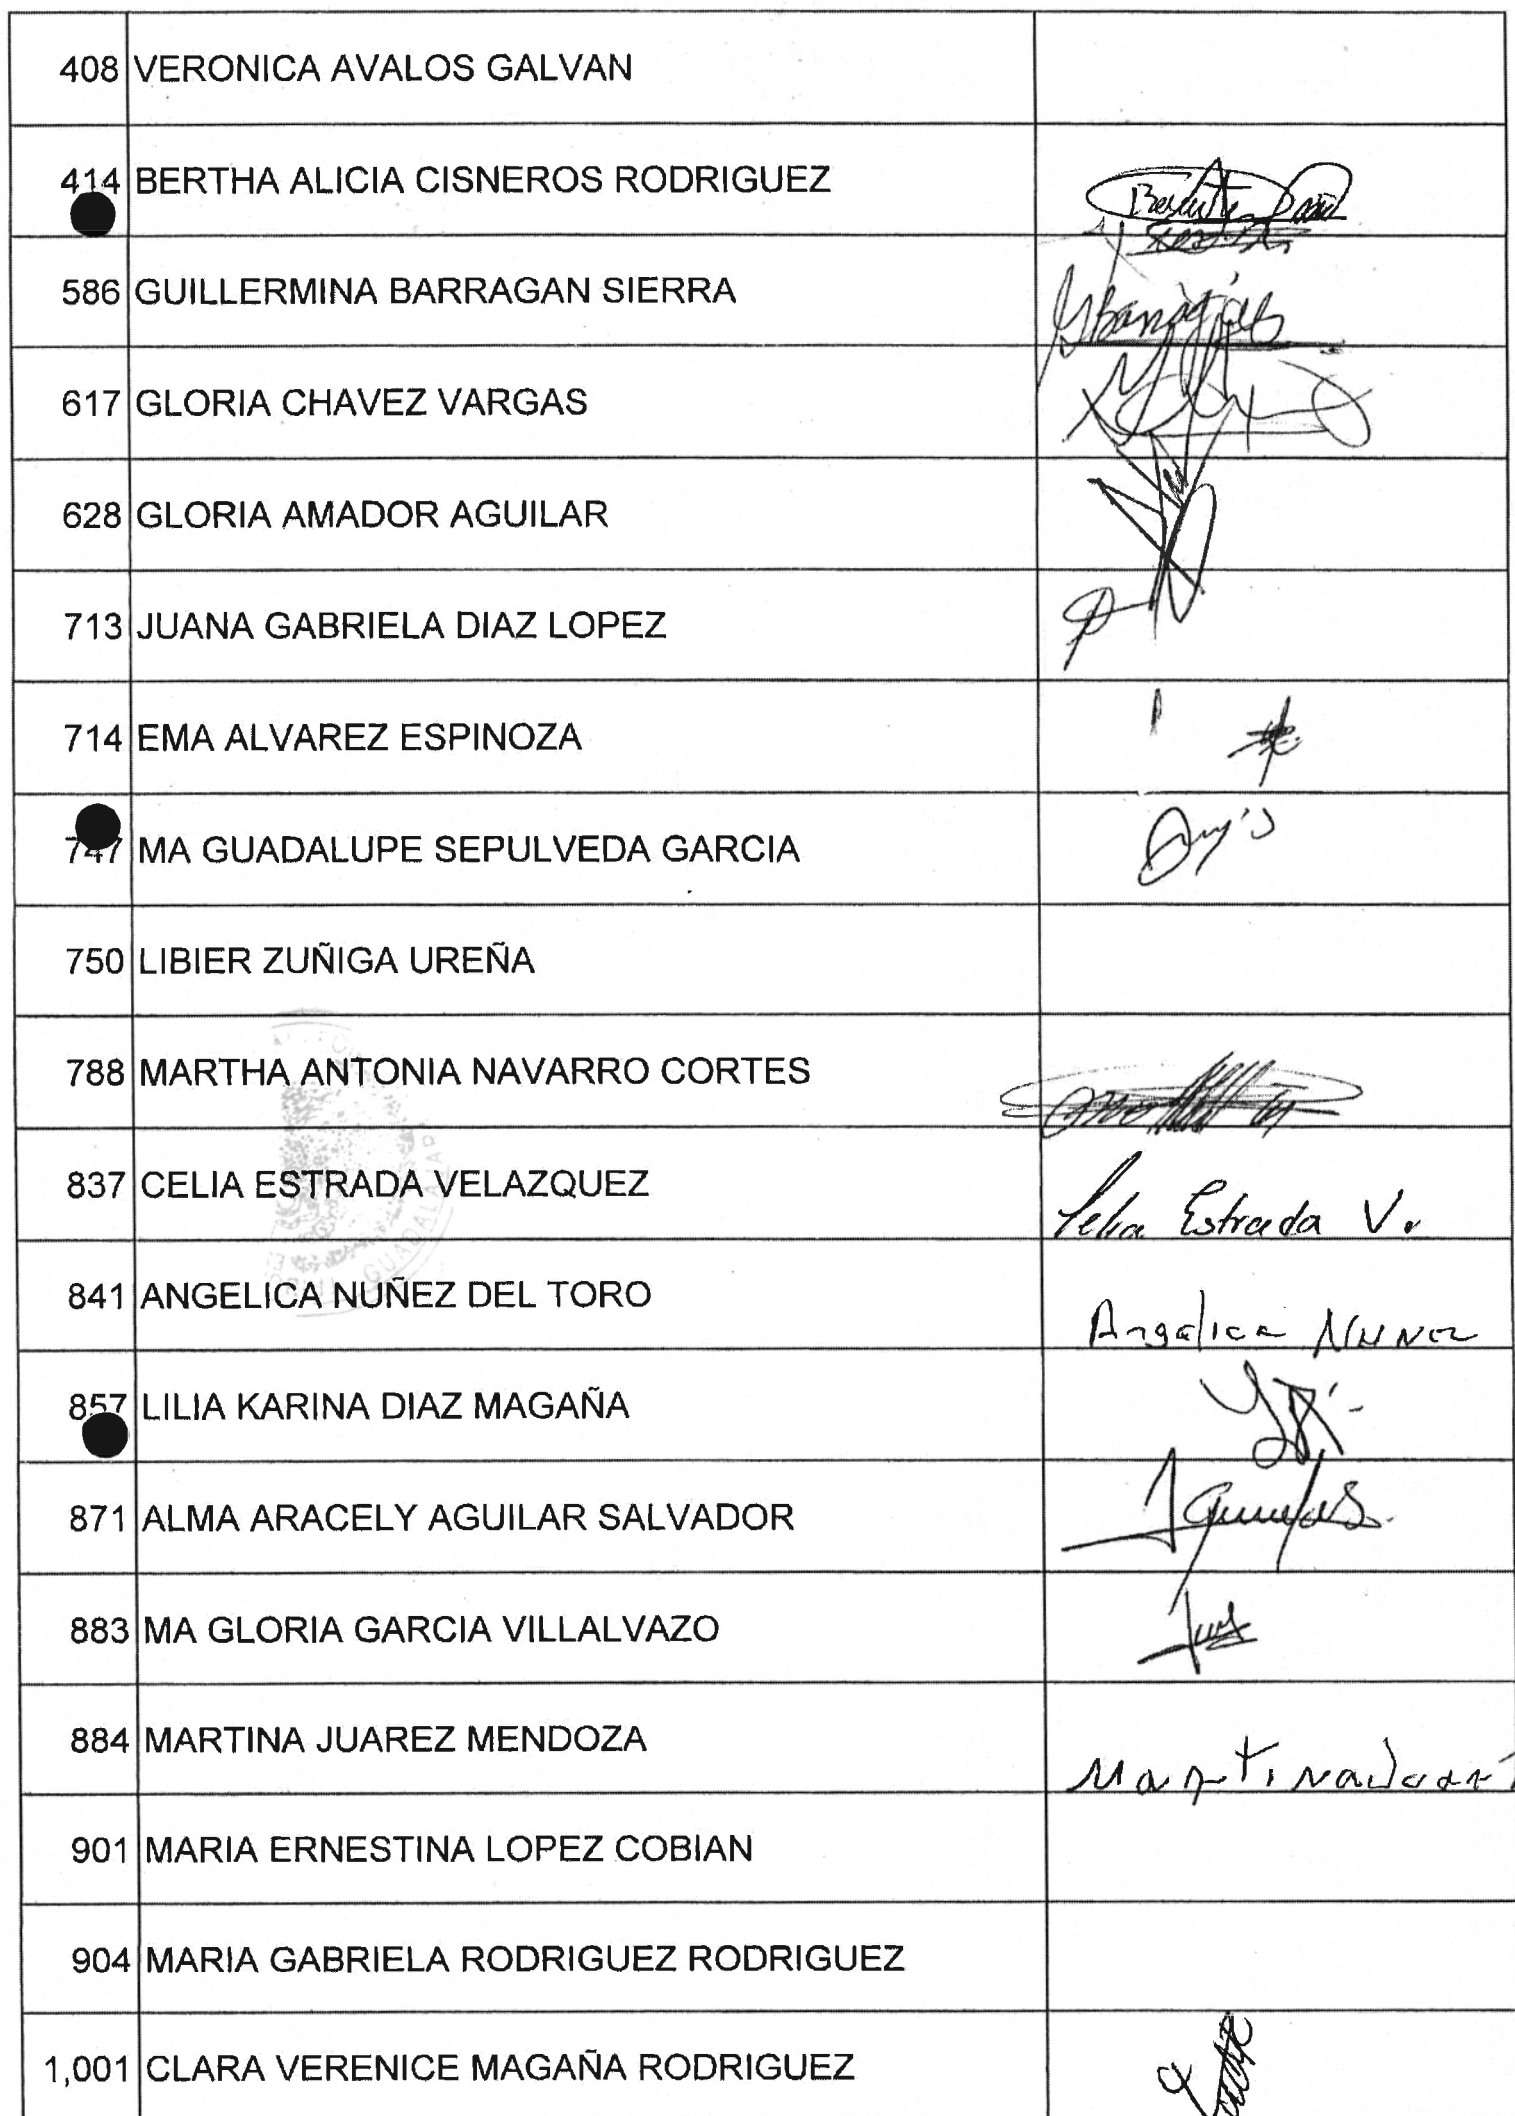 408 VERONICA AVALOS GALVAN
414 BERTHA ALICIA CISNEROS RODRIGUEZ
586 GUILLERMINA BARRAGAN SIERRA
617 GLORIA CHAVEZ VARGAS
628 GLORIA AMADOR AGUILAR
713 JUANA GABRIELA DIAZ LOPEZ
714 EMA ALVAREZ ESPINOZA
747 MA GUADALUPE SEPULVEDA GARCIA
750 LIBIER ZUÑIGA UREÑA
788 MARTHA ANTONIA NAVARRO CORTES
837 CELIA ESTRADA VELAZQUEZ Celia Estrada V.
841 ANGELICA NUÑEZ DEL TORO Angelica Nunez
857 LILIA KARINA DIAZ MAGAÑA
871 ALMA ARACELY AGUILAR SALVADOR
883 MA GLORIA GARCIA VILLALVAZO
884 MARTINA JUAREZ MENDOZA Martina
901 MARIA ERNESTINA LOPEZ COBIAN
904 MARIA GABRIELA RODRIGUEZ RODRIGUEZ
1,001 CLARA VERENICE MAGAÑA RODRIGUEZ